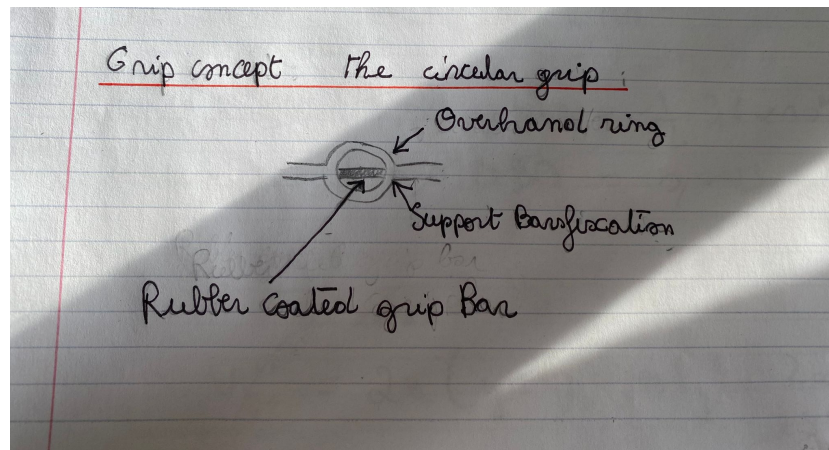 Grip concept The circular grip :
Overhand ring
Support Barsfixcation
Rubber coated grip Bar